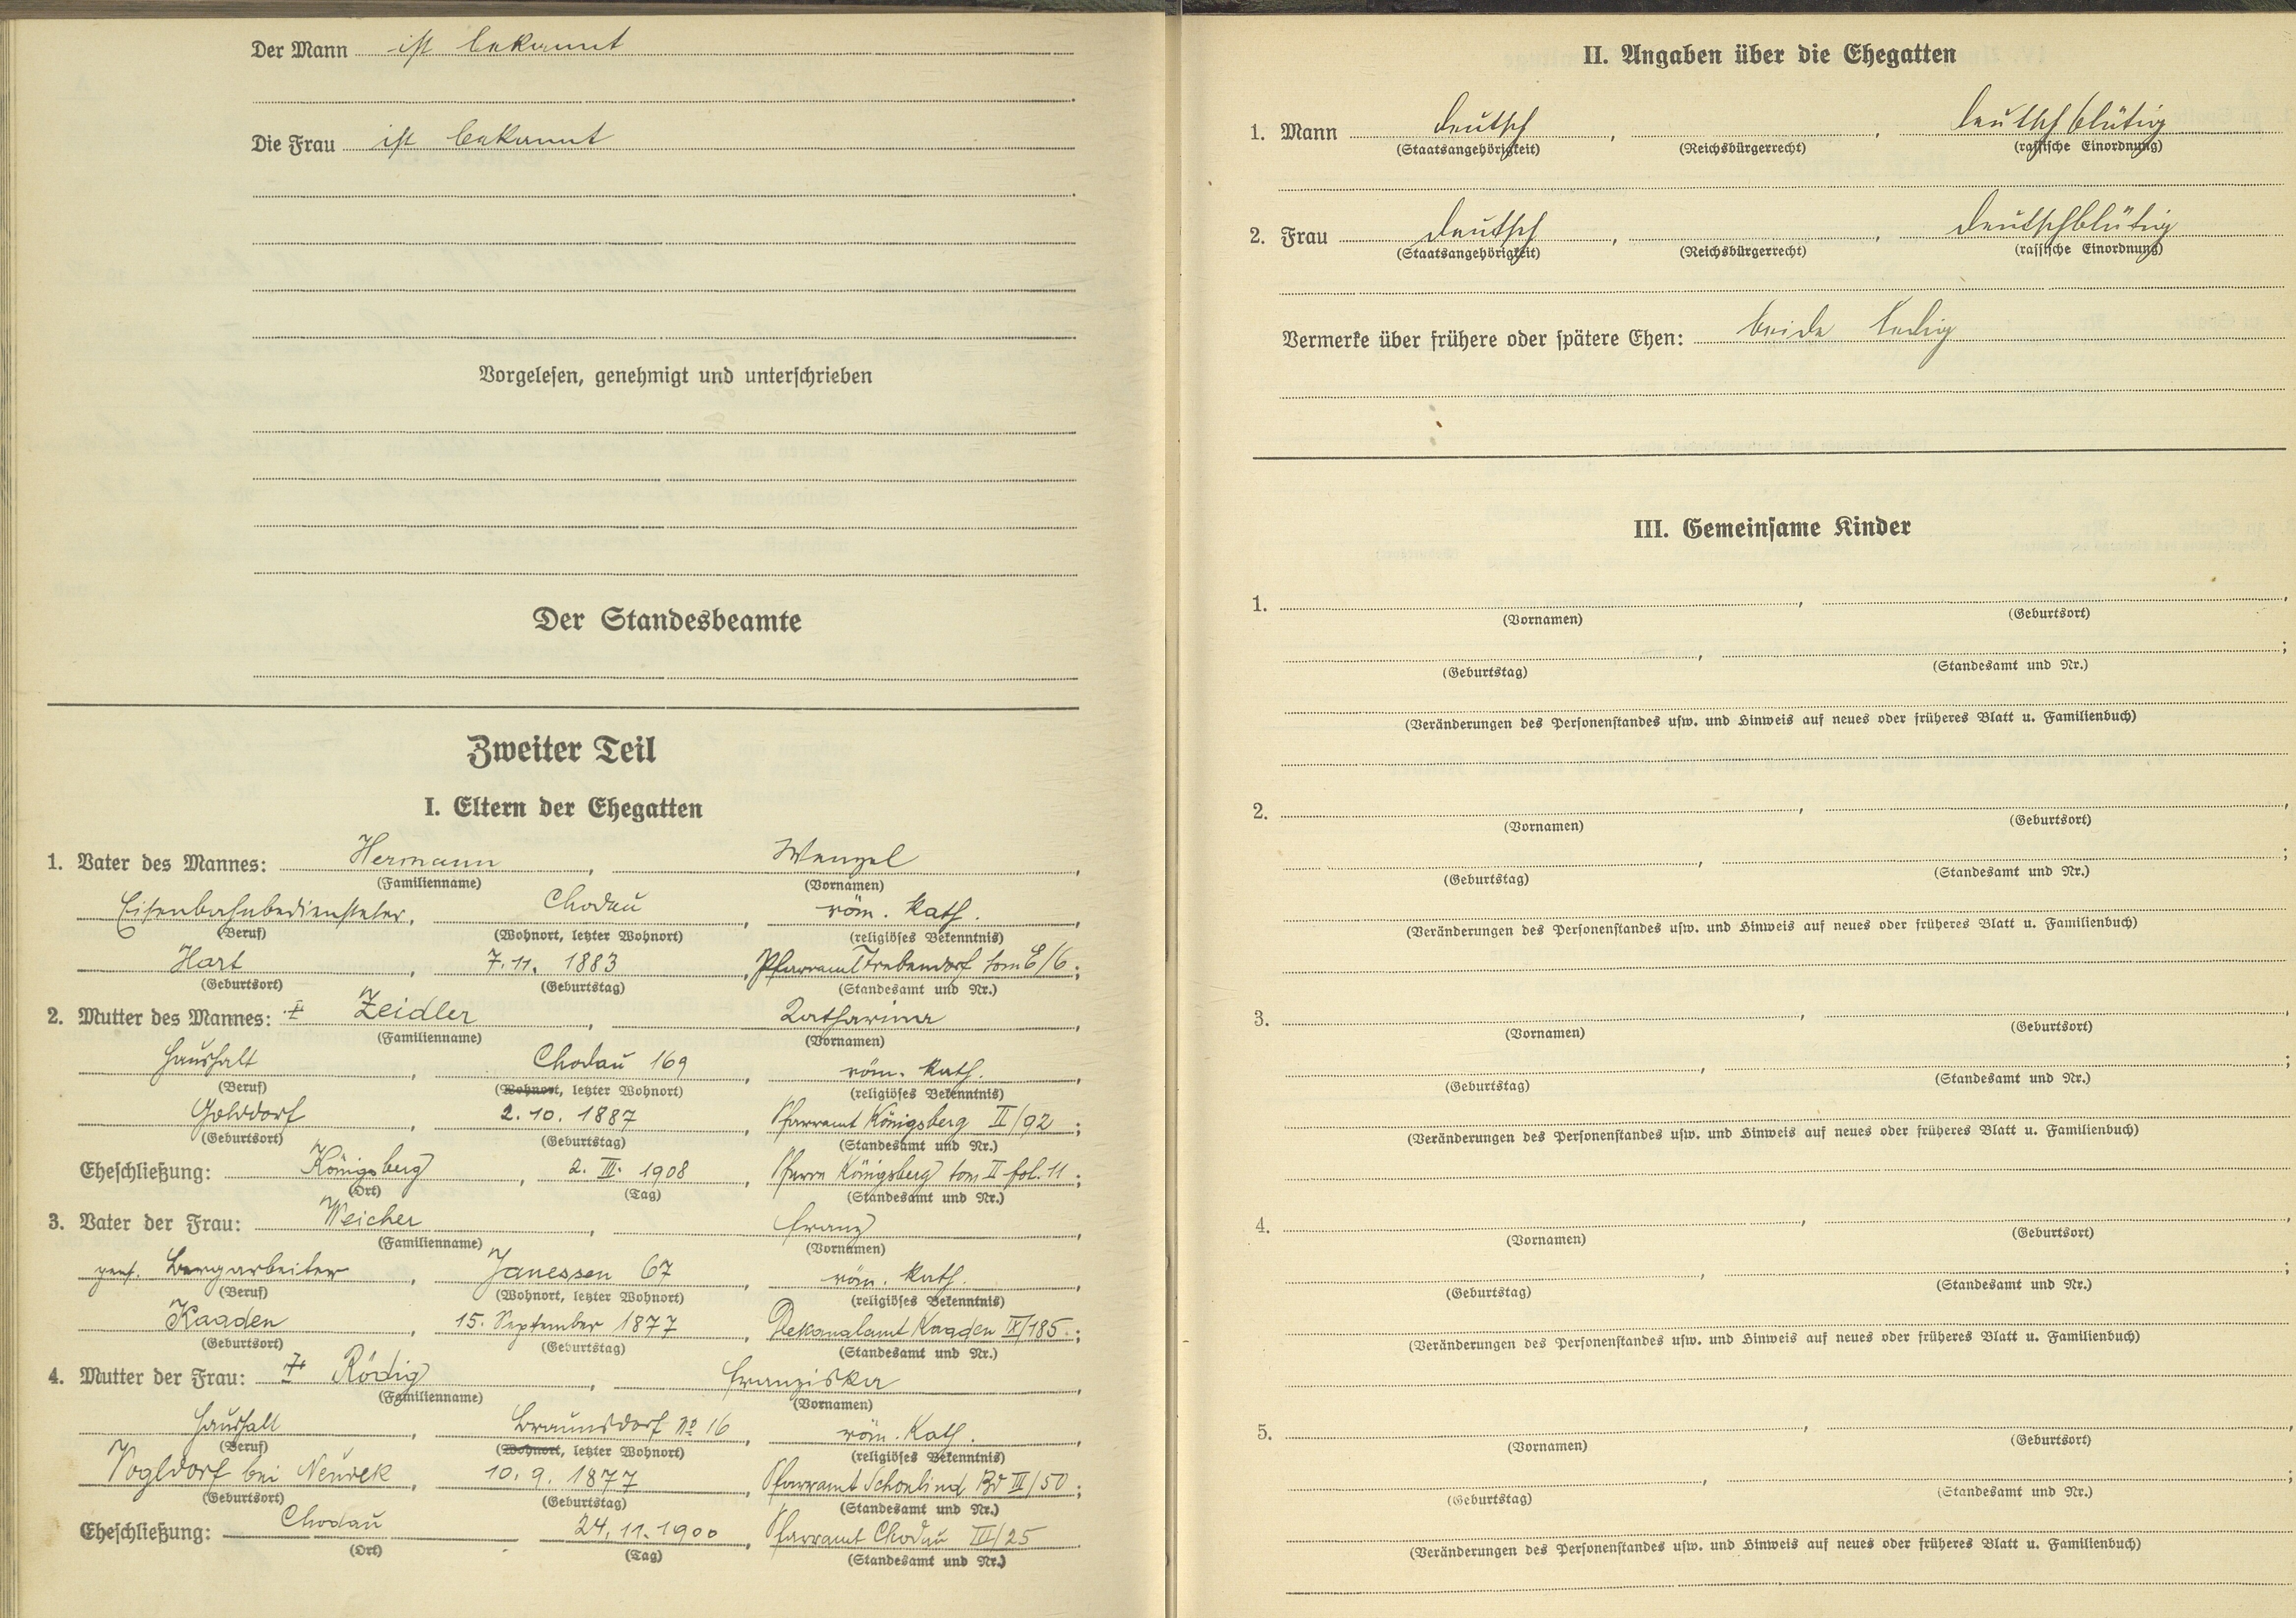 Der Mann ist bekannt
Die Frau ist bekannt
Vorgelesen, genehmigt und unterschrieben
Der Standesbeamte
Zweiter Teil
I. Eltern der Ehegatten
1. Vater des Mannes: Hermann, Wenzel,
(Familienname) (Vornamen)
Eisenbahnbediensteter, Chodau, röm. kath.,
(Beruf) (Wohnort, letzter Wohnort) (religiöses Bekenntnis)
Hart, 7.11. 1883, Pfarramt Trebendorf tom E/6;
(Geburtsort) (Geburtstag) (Standesamt und Nr.)
2. Mutter des Mannes: † Zeidler, Katharina,
(Familienname) (Vornamen)
Haushalt, Chodau 169, röm. kath.,
(Beruf) (Wohnort, letzter Wohnort) (religiöses Bekenntnis)
Golddorf, 2.10. 1887, Pfarramt Königsberg II/92;
(Geburtsort) (Geburtstag) (Standesamt und Nr.)
Eheschließung: Königsberg, 2. III. 1908, Pfarre Königsberg tom II fol. 11;
(Ort) (Tag) (Standesamt und Nr.)
3. Vater der Frau: Weicher, Franz,
(Familienname) (Vornamen)
pens. Bergarbeiter, Janessen 67, röm. kath.,
(Beruf) (Wohnort, letzter Wohnort) (religiöses Bekenntnis)
Kaaden, 15. September 1877, Dekanalamt Kaaden IX/185.;
(Geburtsort) (Geburtstag) (Standesamt und Nr.)
4. Mutter der Frau: † Rödig, Franziska,
(Familienname) (Vornamen)
Haushalt, Braunsdorf No 16, röm. Kath.,
(Beruf) (Wohnort, letzter Wohnort) (religiöses Bekenntnis)
Vogldorf bei Neudek, 10.9. 1877, Pfarramt Schönlind Bd III/50;
(Geburtsort) (Geburtstag) (Standesamt und Nr.)
Eheschließung: Chodau, 24.11.1900, Pfarramt Chodau III/25
(Ort) (Tag) (Standesamt und Nr.)
II. Angaben über die Ehegatten
1. Mann deutsch, , deutschblütig
(Staatsangehörigkeit) (Reichsbürgerrecht) (rassische Einordnung)
2. Frau deutsch, , deutschblütig
(Staatsangehörigkeit) (Reichsbürgerrecht) (rassische Einordnung)
Vermerke über frühere oder spätere Ehen: beide ledig
III. Gemeinsame Kinder
1. , ,
(Vornamen) (Geburtsort)
, ;
(Geburtstag) (Standesamt und Nr.)
(Veränderungen des Personenstandes usw. und Hinweis auf neues oder früheres Blatt u. Familienbuch)
2. , ,
(Vornamen) (Geburtsort)
, ;
(Geburtstag) (Standesamt und Nr.)
(Veränderungen des Personenstandes usw. und Hinweis auf neues oder früheres Blatt u. Familienbuch)
3. , ,
(Vornamen) (Geburtsort)
, ;
(Geburtstag) (Standesamt und Nr.)
(Veränderungen des Personenstandes usw. und Hinweis auf neues oder früheres Blatt u. Familienbuch)
4. , ,
(Vornamen) (Geburtsort)
, ;
(Geburtstag) (Standesamt und Nr.)
(Veränderungen des Personenstandes usw. und Hinweis auf neues oder früheres Blatt u. Familienbuch)
5. , ,
(Vornamen) (Geburtsort)
, ;
(Geburtstag) (Standesamt und Nr.)
(Veränderungen des Personenstandes usw. und Hinweis auf neues oder früheres Blatt u. Familienbuch)